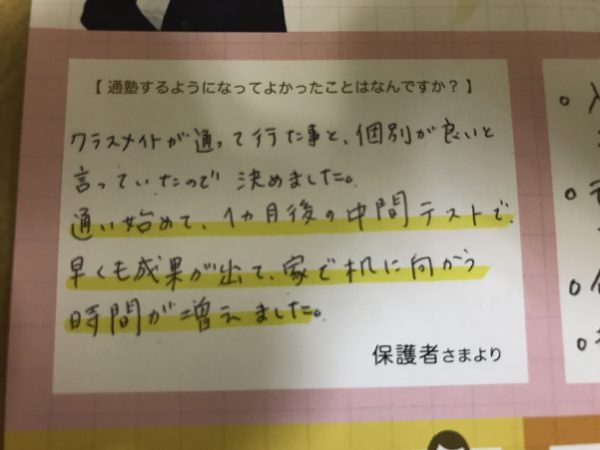 【 通塾するようになってよかったことはなんですか？ 】
クラスメイトが通って行た事と、個別が良いと
言っていたので 決めました。
通い始めて、1カ月後の中間テストで、
早くも成果が出て、家で机に向かう
時間が増えました。
保護者さまより